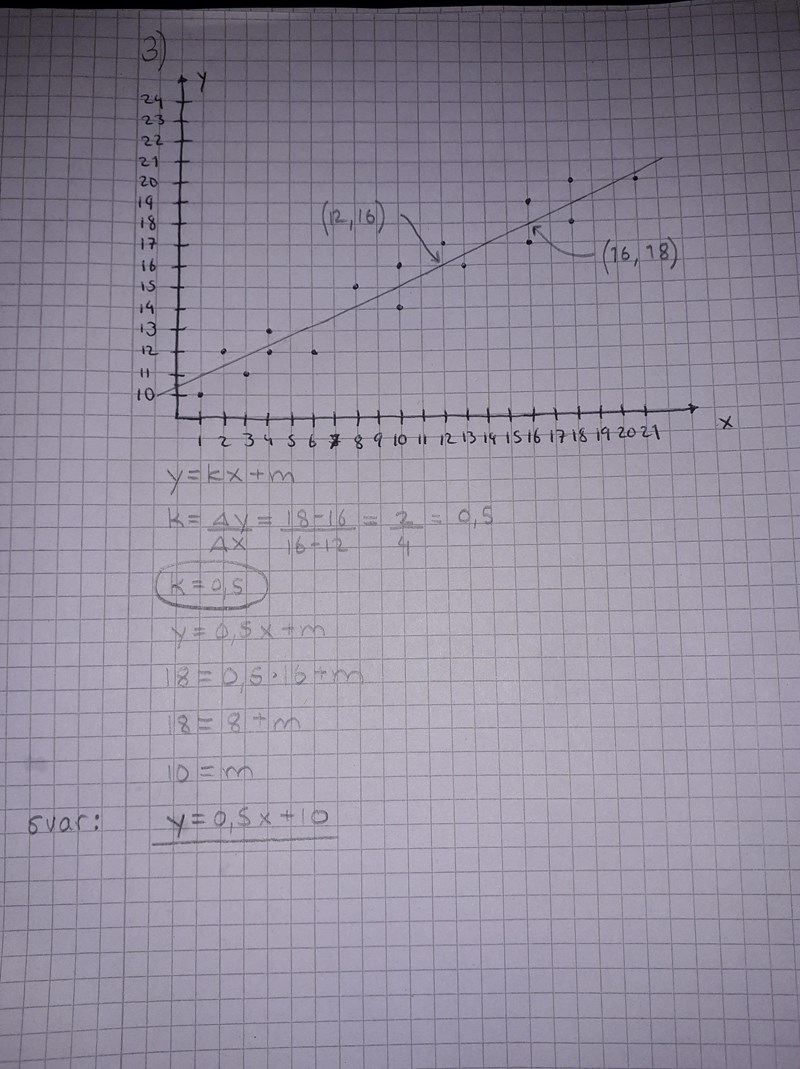 3)
y
24
23
22
21
20
19
18
17
16
15
14
13
12
11
10
(12,16)
(16,18)
1 2 3 4 5 6 7 8 9 10 11 12 13 14 15 16 17 18 19 20 21
x
y=kx+m
k=Δy/Δx=18-16/16-12=2/4=0,5
k=0,5
y=0,5x+m
18=0,5·16+m
18=8+m
10=m
svar: y=0,5x+10